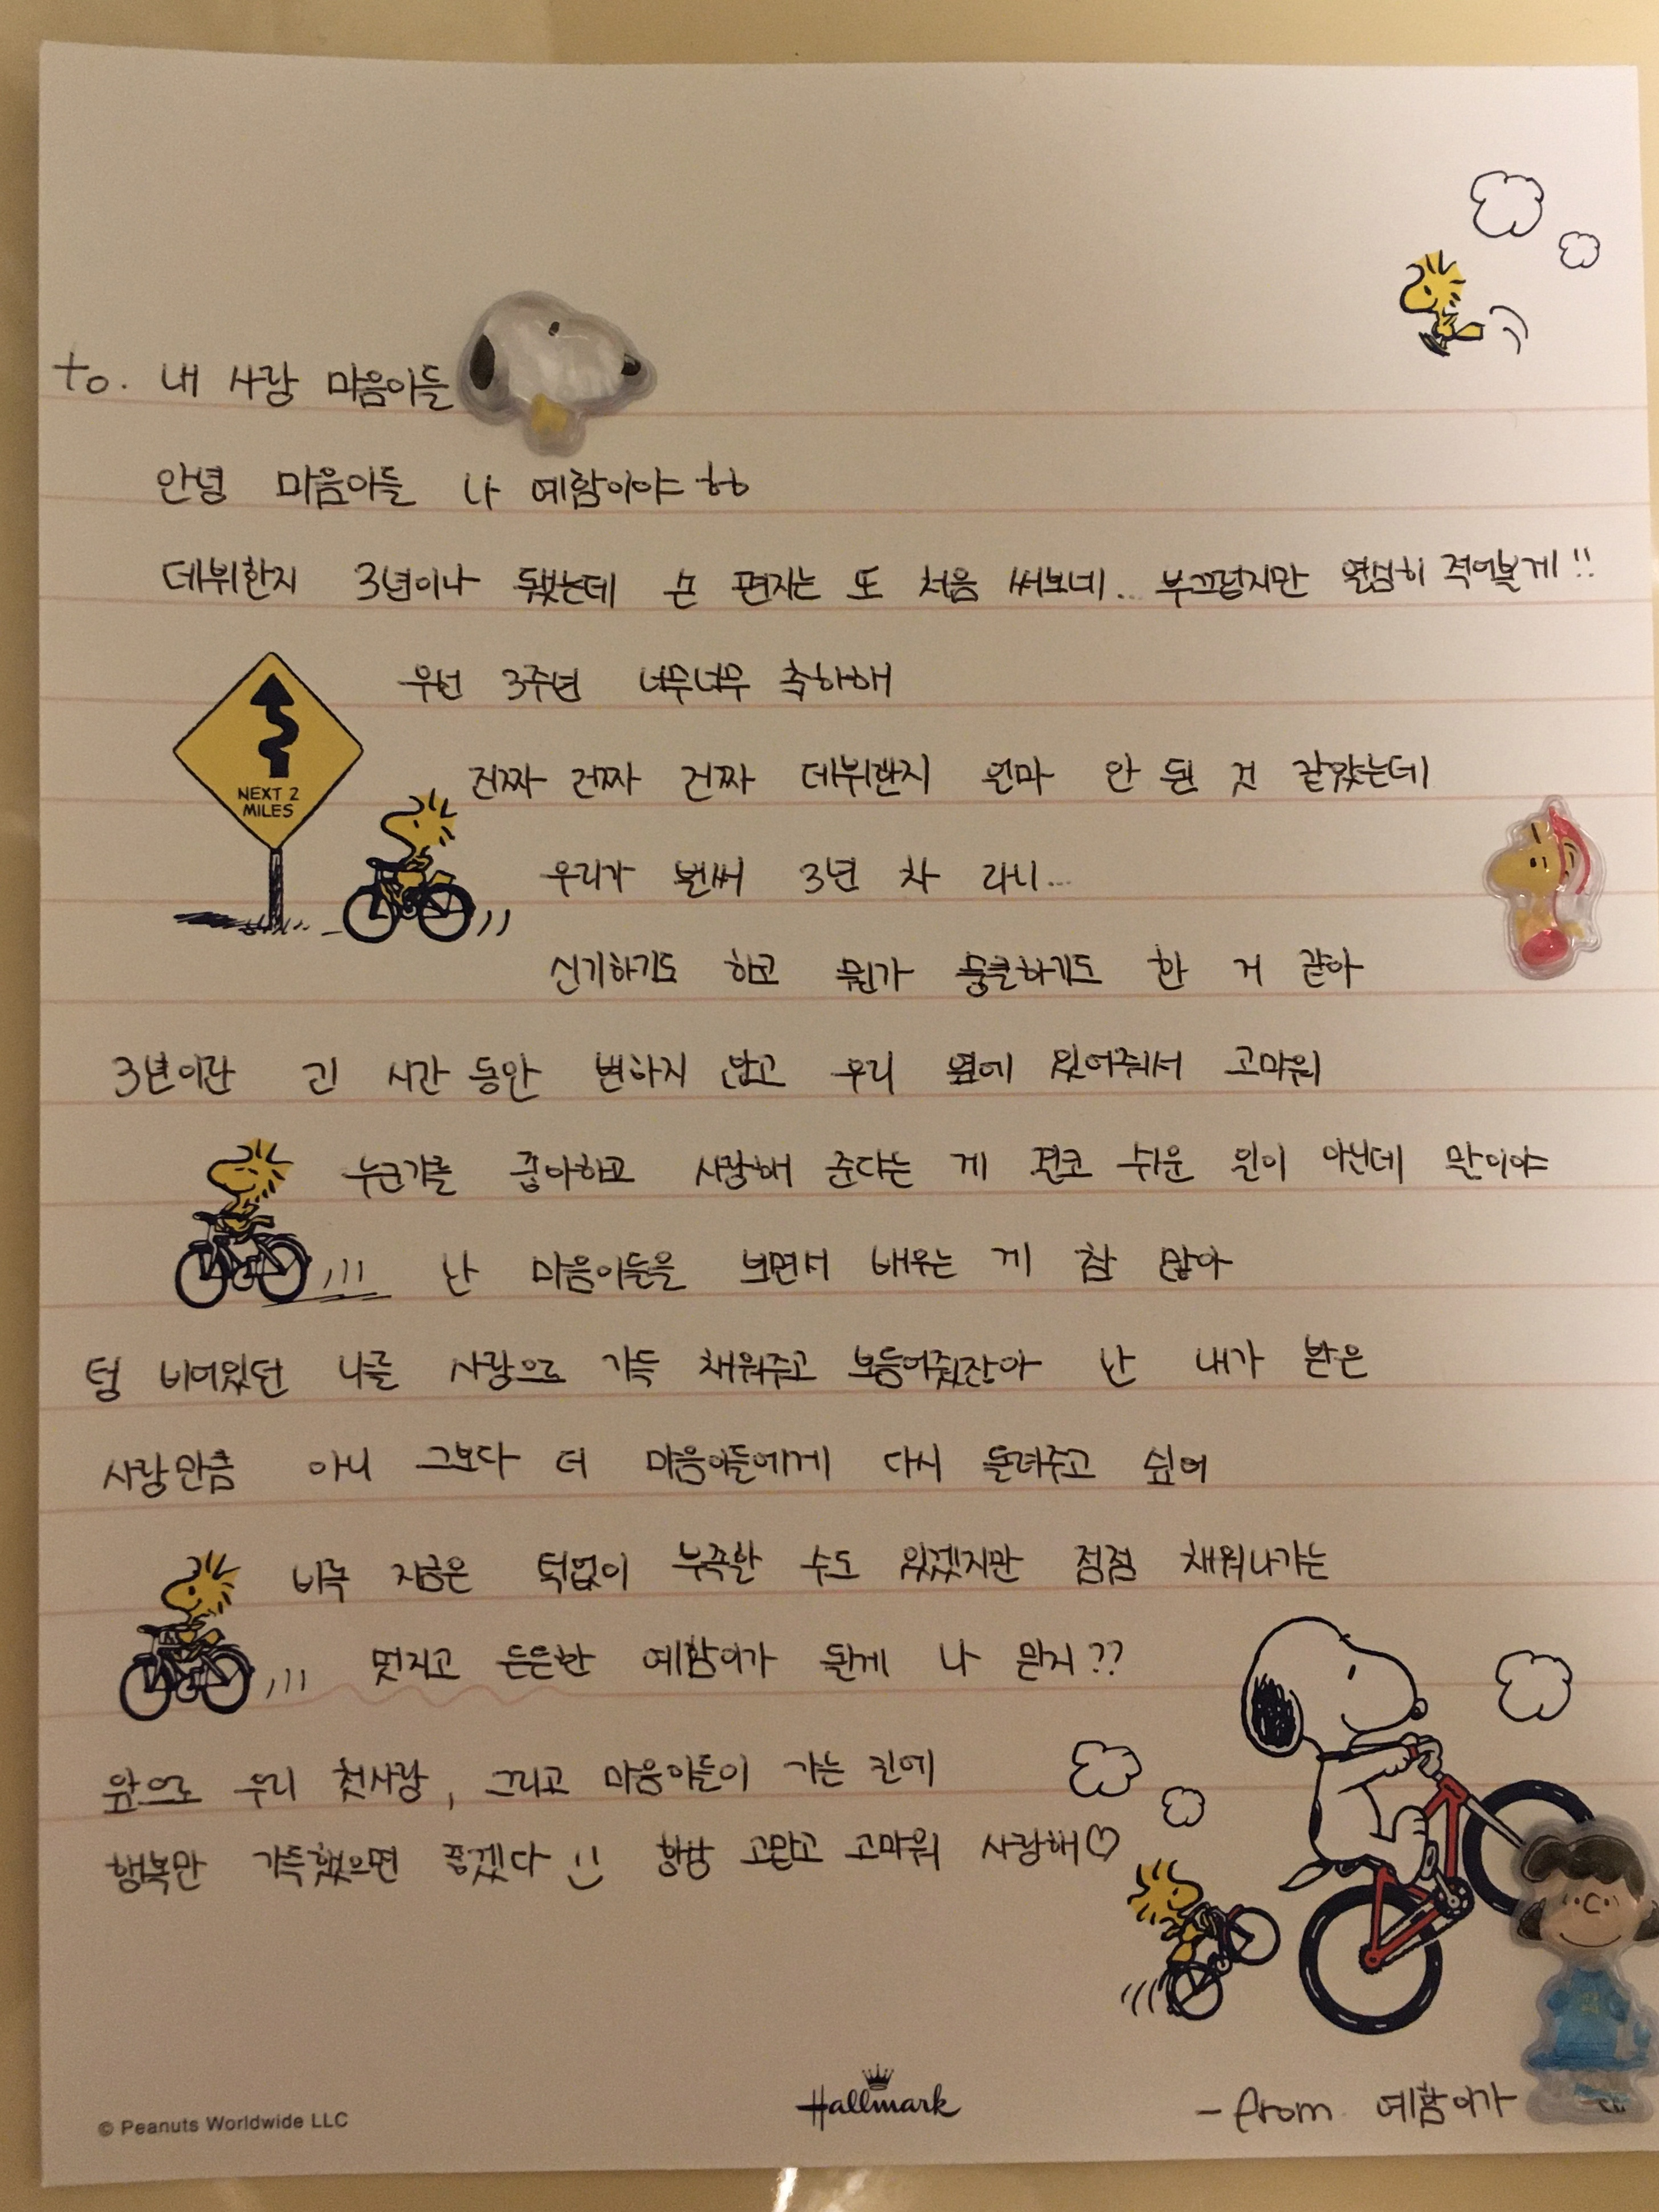 to. 내 사랑 마음이들
안녕 마음이들 나 예함이야 ㅎㅎ
데뷔한지 3년이나 됐는데 손 편지는 또 처음 써보네... 부끄럽지만 열심히 적어볼게!!
우선 3주년 너무너무 축하해
진짜 진짜 진짜 데뷔한지 얼마 안 된 것 같았는데
NEXT 2
MILES
우리가 벌써 3년 차 라니...
신기하기도 하고 뭔가 뭉클하기도 한 거 같아
3년이란 긴 시간 동안 변하지 않고 우리 옆에 있어줘서 고마워
누군가를 좋아하고 사랑해 준다는 게 결코 쉬운 일이 아닌데 말이야
난 마음이들을 보면서 배우는 게 참 많아
텅 비어있던 나를 사랑으로 가득 채워주고 보듬어줬잖아 난 내가 받은
사랑만큼 아니 그보다 더 마음이들에게 다시 돌려주고 싶어
비록 지금은 턱없이 부족한 수도 있겠지만 점점 채워나가는
멋지고 든든한 예함이가 될게 나 믿지??
앞으로 우리 첫사랑, 그리고 마음이들이 가는 길에
행복만 가득했으면 좋겠다 :) 항상 고맙고 고마워 사랑해♡
© Peanuts Worldwide LLC
Hallmark
- from. 예함이가